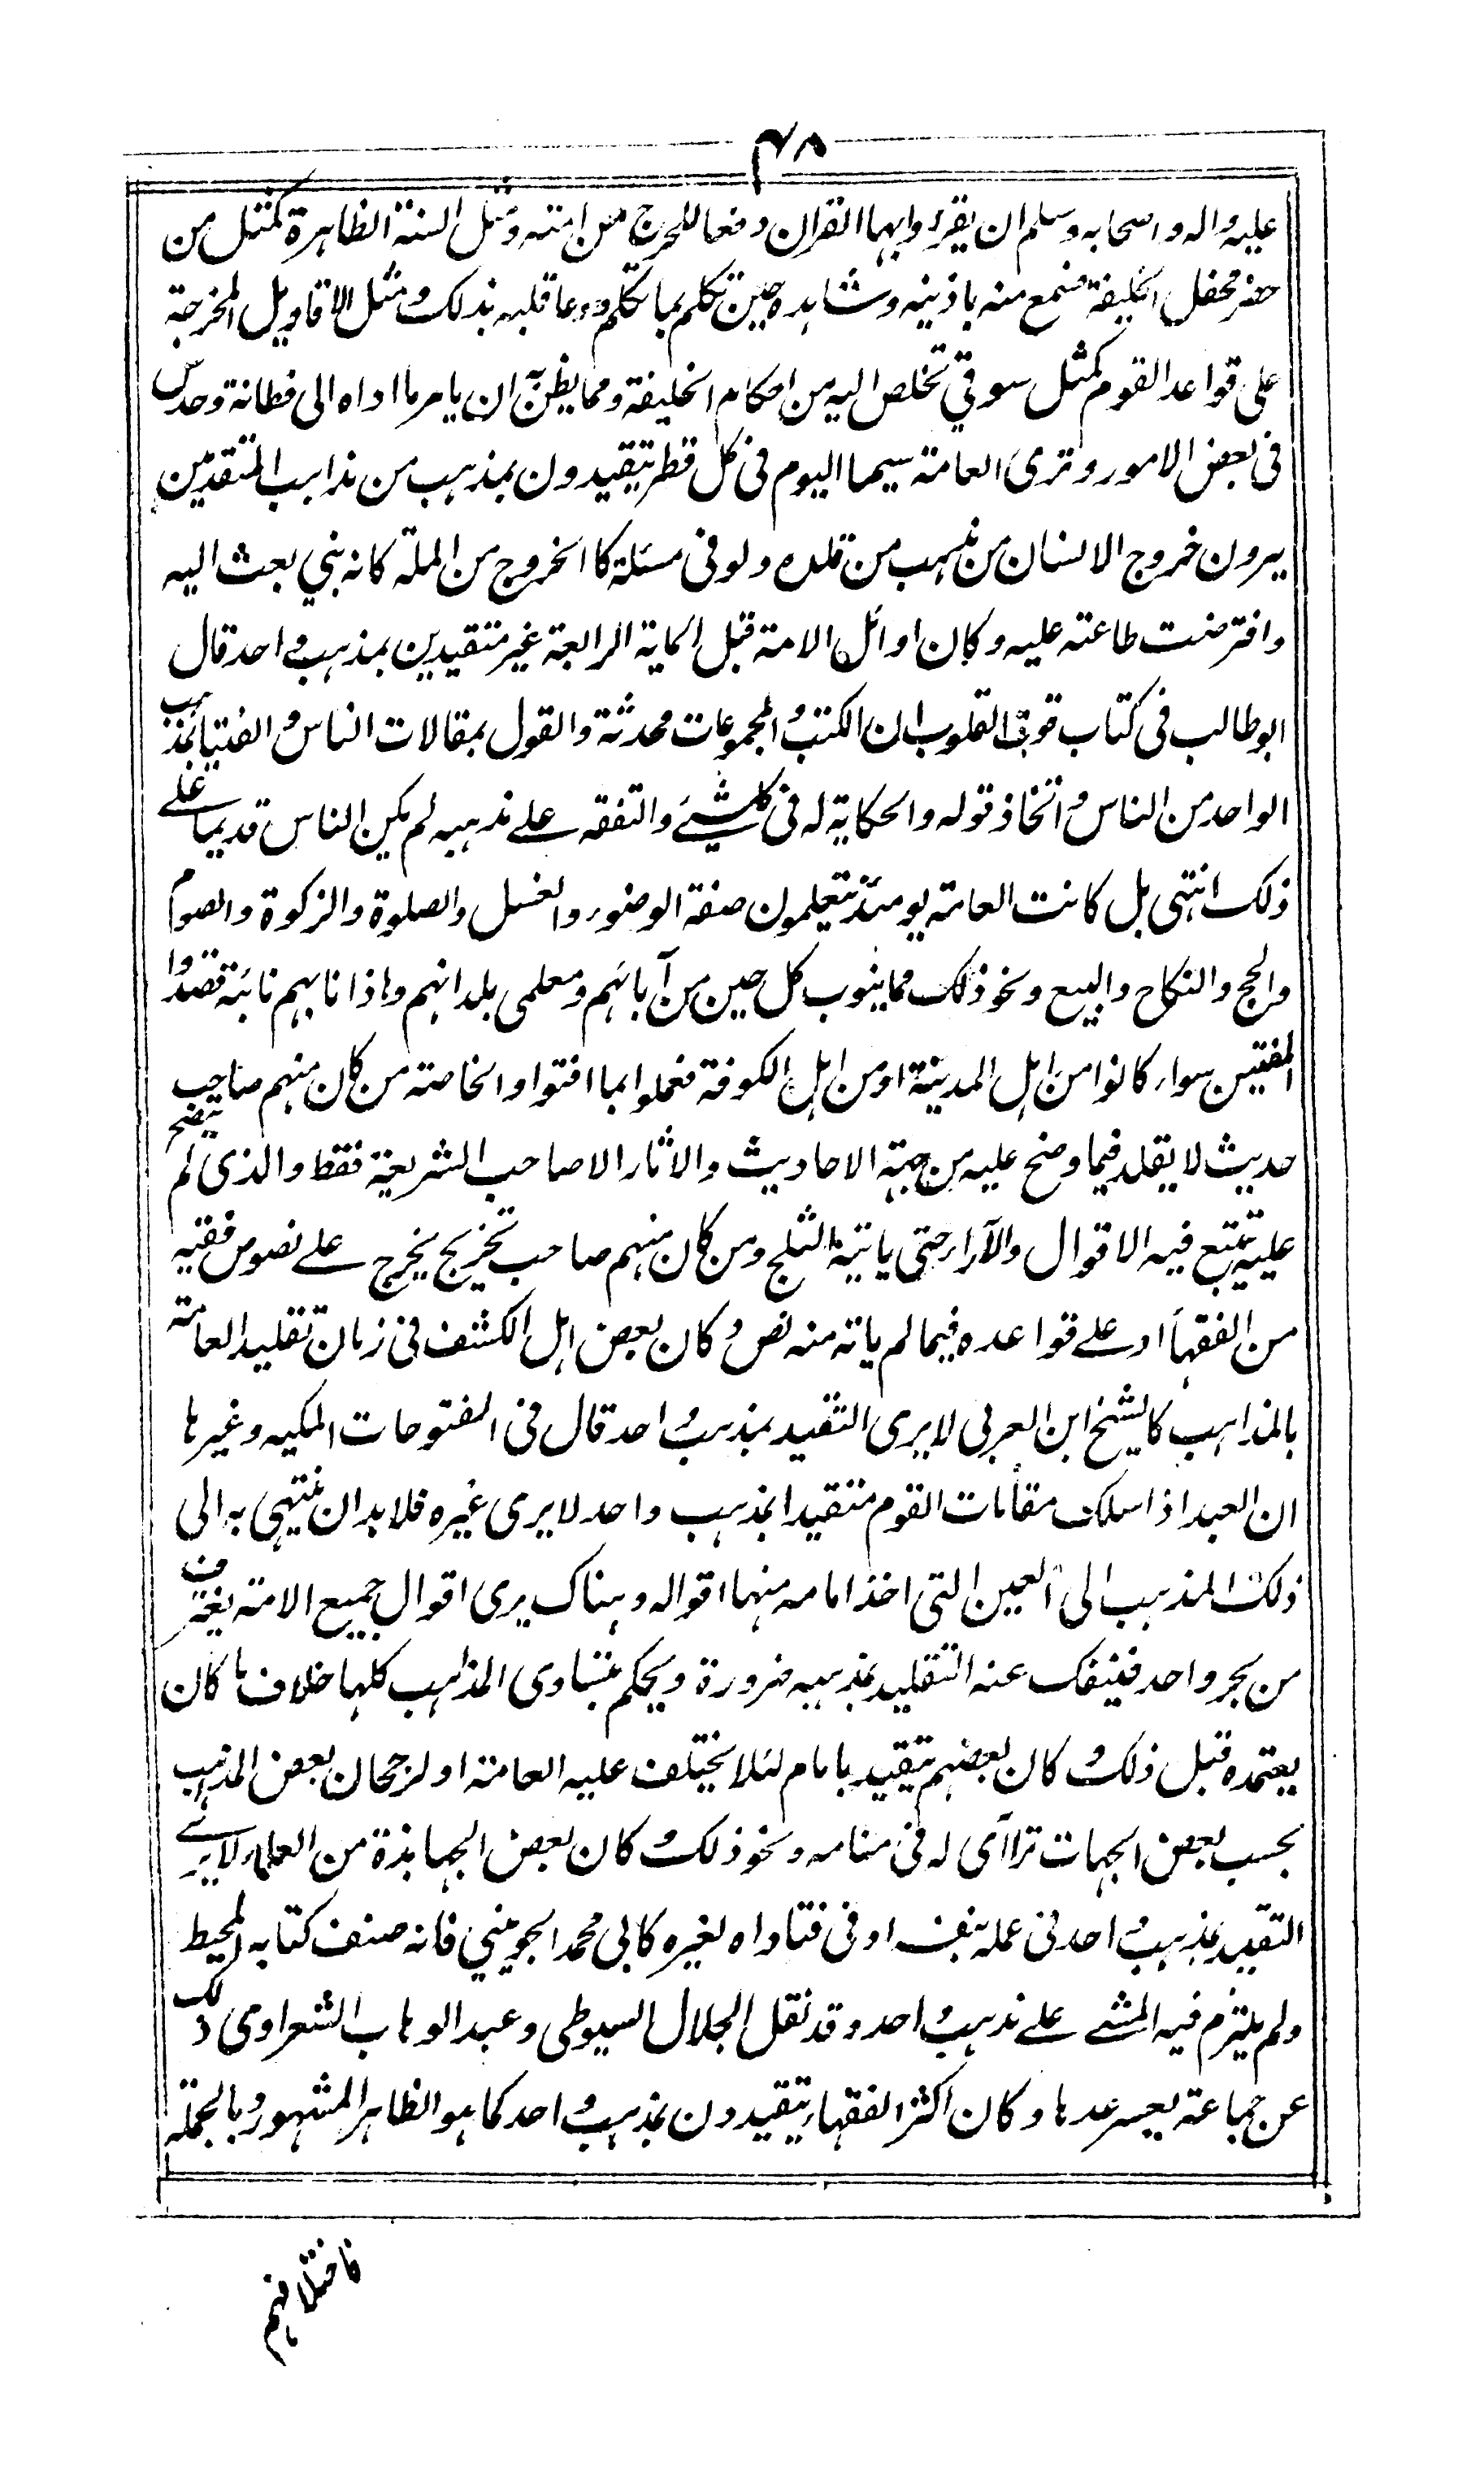 ٢٠٨
عليه واله واصحابه وسلم ان يقرءوا بهما القران دفعا للحرج من امته ومثل السنة الظاهرة كمثل من
حضر محفل الخليفة فسمع منه باذنيه وشاهده حين تكلم بما تكلم ووعا قلبه بذلك ومثل الاقاويل المخرجة
على قواعد القوم كمثل سوقي تخلص اليه من احكام الخليفة ومما يظن به ان يامر ما اداه الى فطانة وحدس
فى بعض الامور وترى العامة سيما اليوم فى كل قطر يتقيدون بمذهب من مذاهب المتقدمين
يرون خروج الانسان من مذهب من قلده ولو فى مسئلة كالخروج من الملة كانه نبي بعث اليه
وافترضت طاعته عليه وكان اوائل الامة قبل المائة الرابعة غير متقيدين بمذهب واحد قال
ابو طالب فى كتاب قوت القلوب ان الكتب والمجموعات محدثة والقول بمقالات الناس والفتيا بمذهب
الواحد من الناس واتخاذ قوله والحكاية له فى كل شئ والتفقه على مذهبه لم يكن الناس قديما على
ذلك انتهى بل كانت العامة يومئذ يتعلمون صفة الوضوء والغسل والصلوة والزكوة والصوم
والحج والنكاح والبيع ونحو ذلك مما ينوب كل حين من آبائهم ومعلمى بلدانهم واذا نابهم نائبة قصدوا
المفتيين سواء كانوا من اهل المدينة او من اهل الكوفة فعملوا بما افتوا والخاصة من كان منهم صاحب
حديث لا يقلد فيما وضح عليه من جهة الاحاديث والاثار الا صاحب الشريعة فقط والذى لم يتضح
عليه يتتبع فيه الاقوال والآراء حتى ياتيه الثلج ومن كان منهم صاحب تخريج يخرج على نصوص فقيه
من الفقهاء او على قواعده فيما لم ياته منه نص وكان بعض اهل الكشف فى زمان تقليد العامة
بالمذاهب كالشيخ ابن العربى لا يرى التقيد بمذهب واحد قال فى الفتوحات المكيه وغيرها
ان العبد اذا سلك مقامات القوم متقيدا بمذهب واحد لا يرى غيره فلا بد ان ينتهى به الى
ذلك المذهب الى العين التى اخذ امامه منها اقواله وهناك يرى اقوال جميع الامة يغترف
من بحر واحد فينفك عنه التقليد بمذهبه ضرورة ويحكم بتساوى المذاهب كلها خلاف ما كان
يعتمده قبل ذلك وكان بعضهم يتقيد بامام لئلا يختلف عليه العامة او لرجحان بعض المذاهب
بحسب بعض الجهات تراآى له فى منامه ونحو ذلك وكان بعض الجهابذة من العلماء لا يرے
التقيد بمذهب واحد فى عمله بنفسه او فى فتاواه لغيره كابى محمد الجويني فانه صنف كتابه المحيط
ولم يلتزم فيه المشے على مذهب واحد وقد نقل الجلال السيوطى وعبد الوهاب الشعراوى ذلك
عن جماعة يعسر عدها وكان اكثر الفقهاء يتقيدون بمذهب واحد كما هو الظاهر المشهور وبالجملة
فاختلافهم